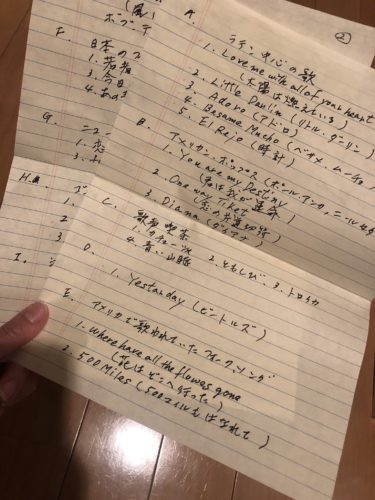 ②
A. ラテン中心の歌
1. Love me with all of your heart
(太陽は燃えている)
2. Little Darlin (リトル・ダーリン)
3. Adoro (アドロ)
4. Besame Mucho (ベサメ・ムーチョ
5. El Rejo (時計)
B. アメリカン・ポップス (ポール・アンカ, ニール・セダカ
1. You are my Destiny
(君は我が運命)
2. One way Ticket
(恋の片道切符)
3. Diana (ダイアナ)
C. 歌声喫茶
1. カチューシャ 2. ともしび 3. トロイカ
4. 青い山脈
D.
1. Yestarday (ビートルズ)
E. アメリカで歌われていたフォークソング
1. Where have all the flowes gone
(花はどこへ行った)
2. 500 Miles (500マイルもはなれて)
F. 日本の
1. 若者
3. 今日
4. あの
G. ニュー
1. 恋
H.
1.
2
3
I.